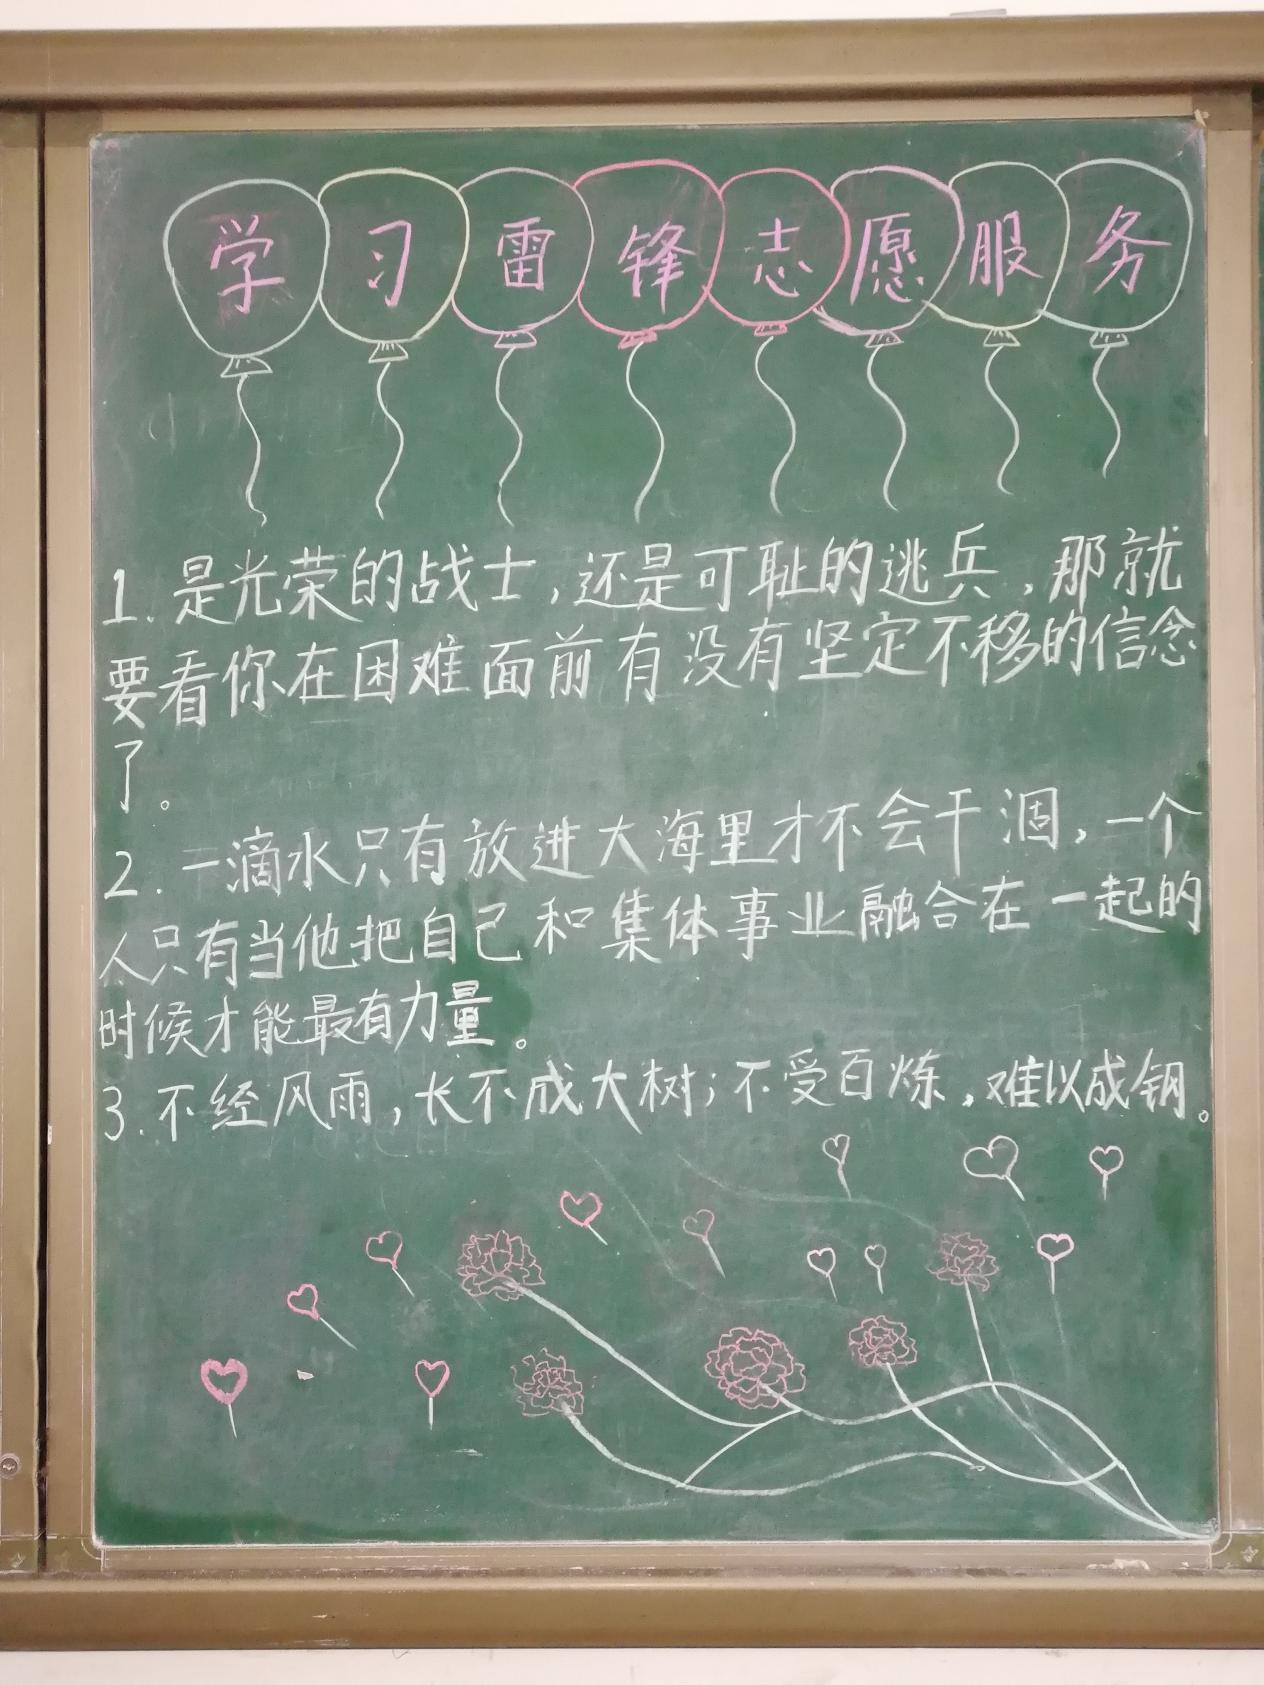 学习雷锋志愿服务
1.是光荣的战士,还是可耻的逃兵,那就
要看你在困难面前有没有坚定不移的信念
了。
2.一滴水只有放进大海里才不会干涸,一个
人只有当他把自己和集体事业融合在一起的
时候才能最有力量。
3.不经风雨,长不成大树;不受百炼,难以成钢。